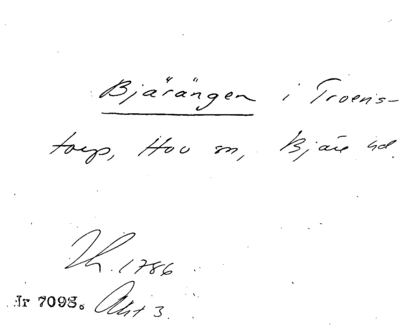 Bjärängen i Troens-
torp, Hov sn, Bjäre hd.
Lh. 1786
Nr 7098. Akt 3.